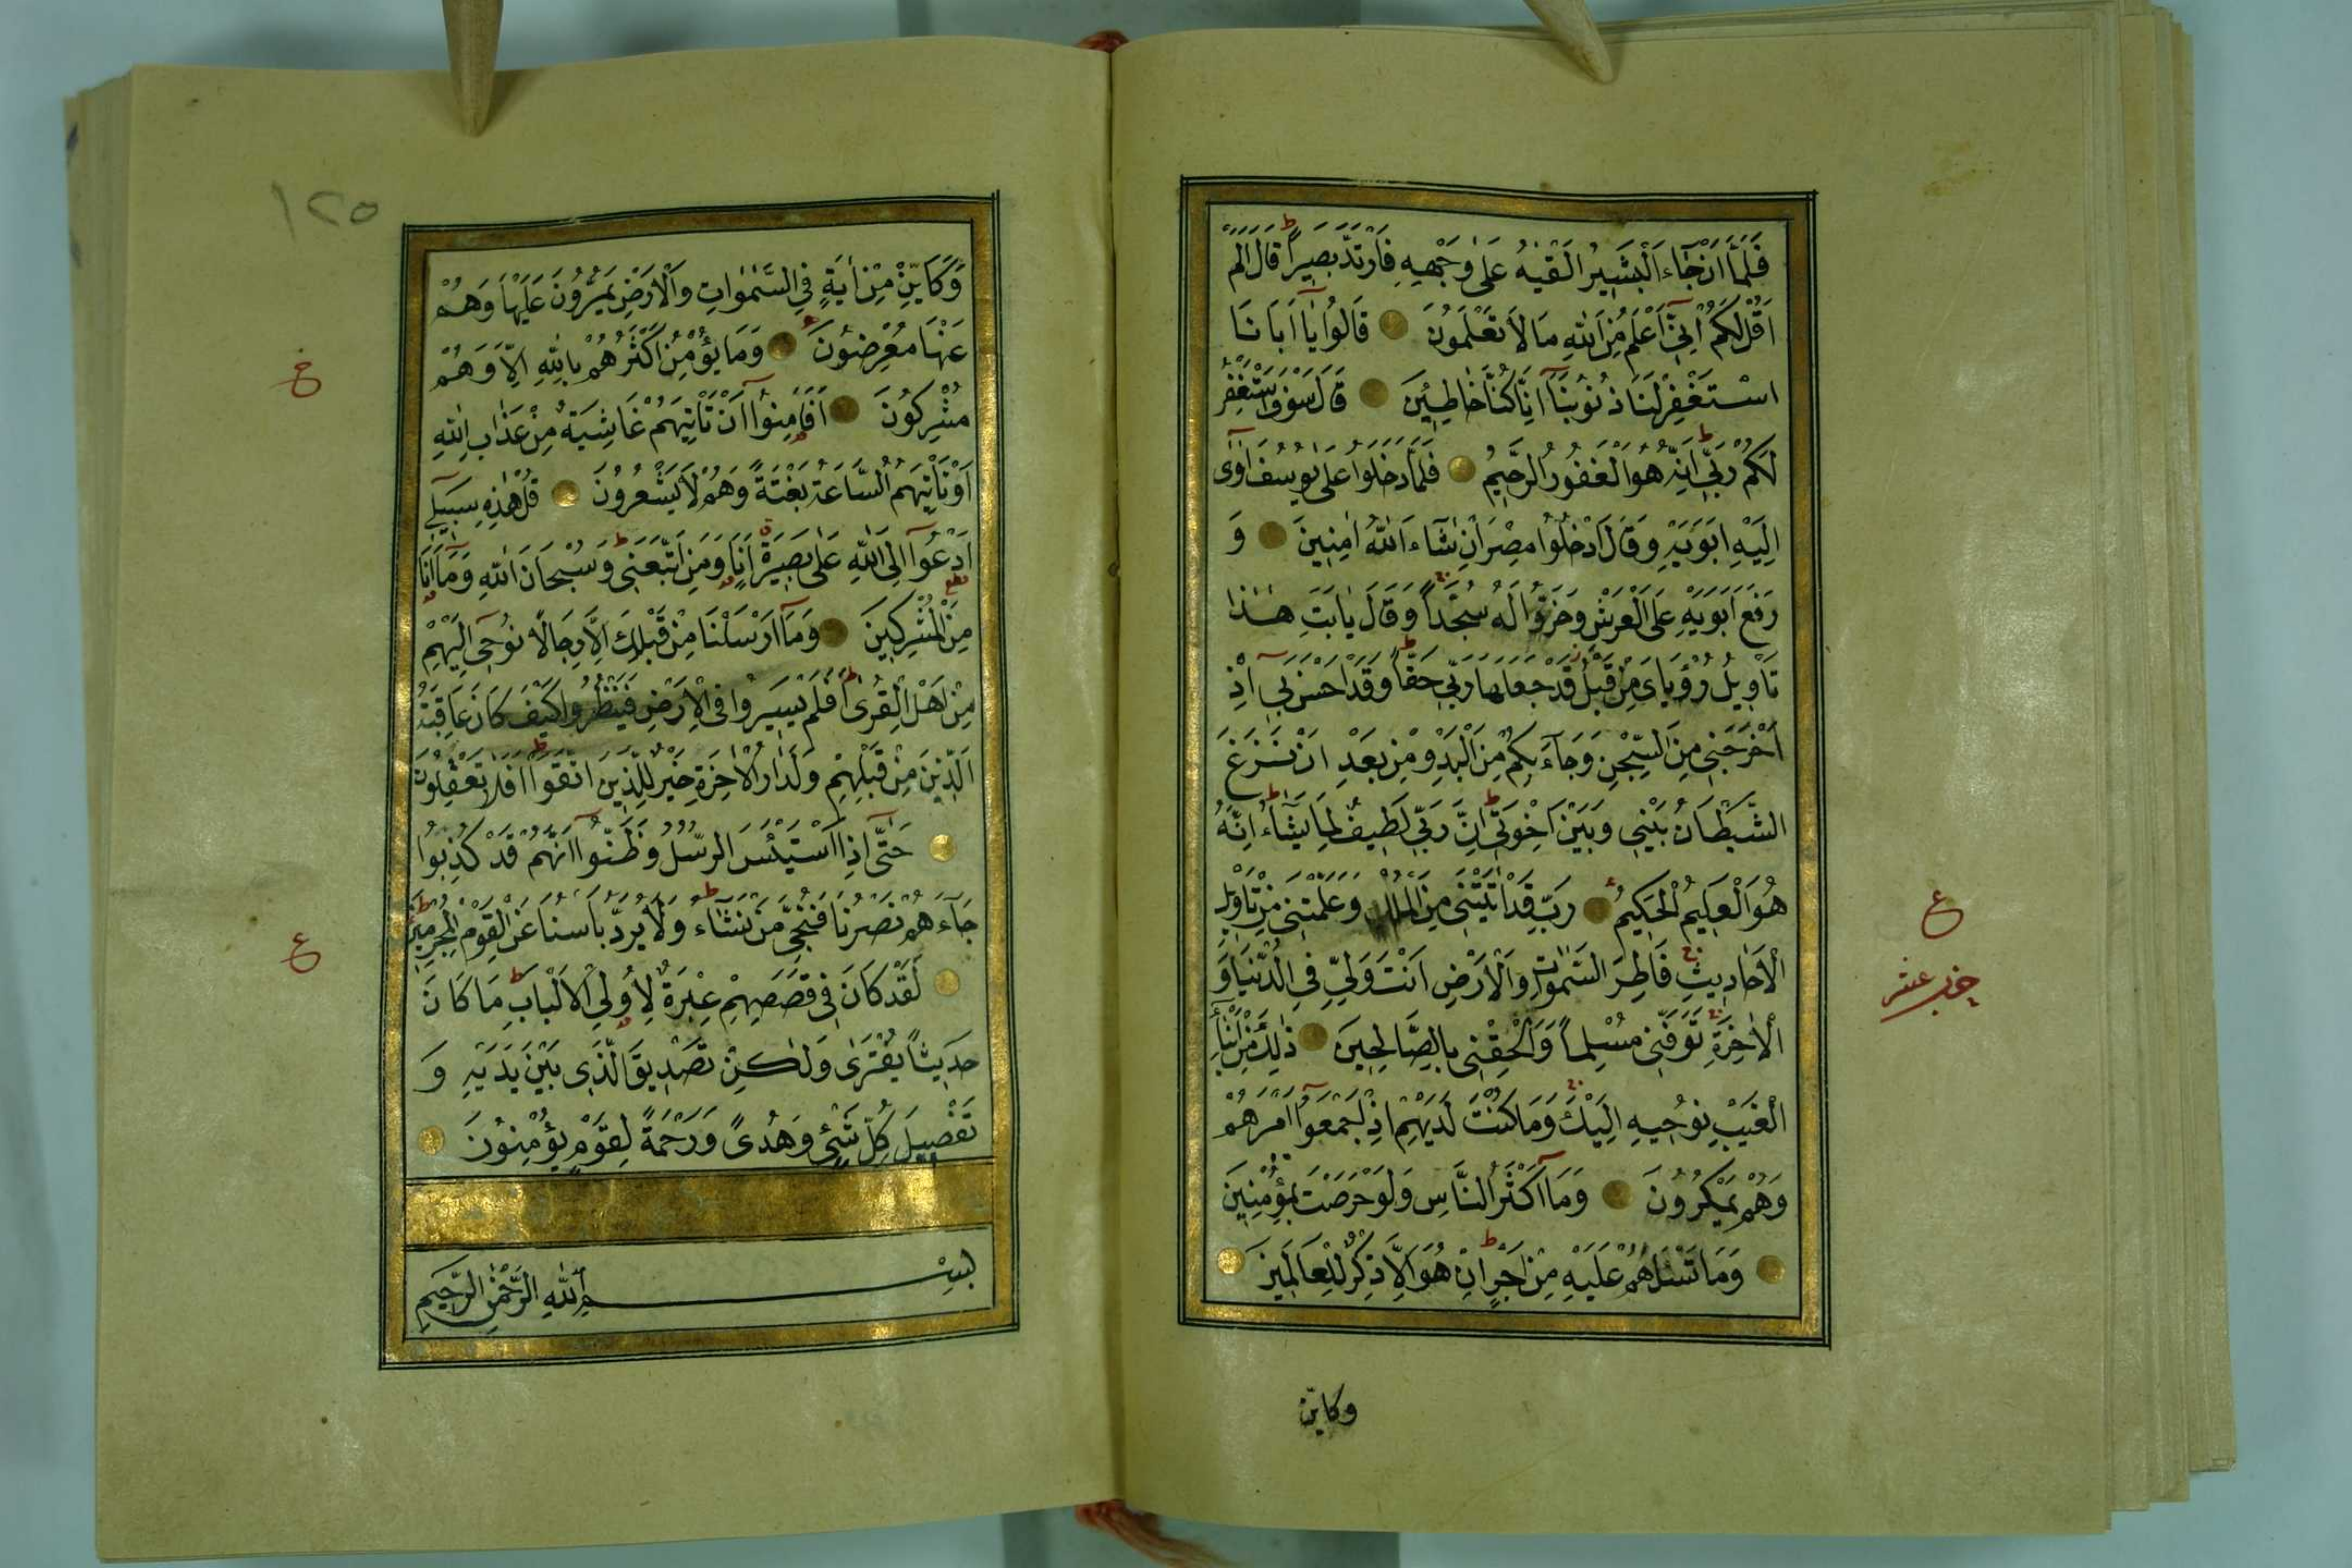 فَلَمَّا اَنْ جَٓاءَ الْبَشٖيرُ اَلْقٰيهُ عَلٰى وَجْهِهٖ فَارْتَدَّ بَصٖيرًا ط قَالَ اَلَمْ
اَقُلْ لَكُمْ اِنّٖٓى اَعْلَمُ مِنَ اللّٰهِ مَا لَا تَعْلَمُونَ قَالُوا يَٓا اَبَانَا
اسْتَغْفِرْ لَنَا ذُنُوبَنَٓا اِنَّا كُنَّا خَاطِـٖٔينَ قَالَ سَوْفَ اَسْتَغْفِرُ
لَكُمْ رَبّٖى ط اِنَّهُ هُوَ الْغَفُورُ الرَّحٖيمُ فَلَمَّا دَخَلُوا عَلٰى يُوسُفَ اٰوٰٓى
اِلَيْهِ اَبَوَيْهِ وَقَالَ ادْخُلُوا مِصْرَ اِنْ شَٓاءَ اللّٰهُ اٰمِنٖينَ وَ
رَفَعَ اَبَوَيْهِ عَلَى الْعَرْشِ وَخَرُّوا لَهُ سُجَّدًا وَقَالَ يَٓا اَبَتِ هٰذَا
تَاْوٖيلُ رُؤْيَاىَ مِنْ قَبْلُ قَدْ جَعَلَهَا رَبّٖى حَقًّا ط وَقَدْ اَحْسَنَ بٖٓى اِذْ
اَخْرَجَنٖى مِنَ السِّجْنِ وَجَٓاءَ بِكُمْ مِنَ الْبَدْوِ مِنْ بَعْدِ اَنْ نَزَغَ
الشَّيْطَانُ بَيْنٖى وَبَيْنَ اِخْوَتٖى ط اِنَّ رَبّٖى لَطٖيفٌ لِمَا يَشَٓاءُ ط اِنَّهُ
هُوَ الْعَلٖيمُ الْحَكٖيمُ رَبِّ قَدْ اٰتَيْتَنٖى مِنَ الْمُلْكِ وَعَلَّمْتَنٖى مِنْ تَاْوٖيلِ
الْاَحَادٖيثِ فَاطِرَ السَّمٰوَاتِ وَالْاَرْضِ اَنْتَ وَلِيّٖ فِى الدُّنْيَا وَ
الْاٰخِرَةِ تَوَفَّنٖى مُسْلِمًا وَاَلْحِقْنٖى بِالصَّالِحٖينَ ذٰلِكَ مِنْ اَنْبَٓاءِ
الْغَيْبِ نُوحٖيهِ اِلَيْكَ وَمَا كُنْتَ لَدَيْهِمْ اِذْ اَجْمَعُٓوا اَمْرَهُمْ
وَهُمْ يَمْكُرُونَ وَمَٓا اَكْثَرُ النَّاسِ وَلَوْ حَرَصْتَ بِمُؤْمِنٖينَ
وَمَا تَسْـَٔلُهُمْ عَلَيْهِ مِنْ اَجْرٍ ط اِنْ هُوَ اِلَّا ذِكْرٌ لِلْعَالَمٖينَ
وكاين
ع
حزب عشر
١٢٥
وَكَاَيِّنْ مِنْ اٰيَةٍ فِى السَّمٰوَاتِ وَالْاَرْضِ يَمُرُّونَ عَلَيْهَا وَهُمْ
عَنْهَا مُعْرِضُونَ وَمَا يُؤْمِنُ اَكْثَرُهُمْ بِاللّٰهِ اِلَّا وَهُمْ
مُشْرِكُونَ اَفَاَمِنُٓوا اَنْ تَاْتِيَهُمْ غَاشِيَةٌ مِنْ عَذَابِ اللّٰهِ
اَوْ تَاْتِيَهُمُ السَّاعَةُ بَغْتَةً وَهُمْ لَا يَشْعُرُونَ قُلْ هٰذِهٖ سَبٖيلٖٓى
اَدْعُٓوا اِلَى اللّٰهِ عَلٰى بَصٖيرَةٍ اَنَا وَمَنِ اتَّبَعَنٖى ط وَسُبْحَانَ اللّٰهِ وَمَٓا اَنَا
مِنَ الْمُشْرِكٖينَ وَمَٓا اَرْسَلْنَا مِنْ قَبْلِكَ اِلَّا رِجَالًا نُوحٖٓى اِلَيْهِمْ
مِنْ اَهْلِ الْقُرٰى ط اَفَلَمْ يَسٖيرُوا فِى الْاَرْضِ فَيَنْظُرُوا كَيْفَ كَانَ عَاقِبَةُ
الَّذٖينَ مِنْ قَبْلِهِمْ وَلَدَارُ الْاٰخِرَةِ خَيْرٌ لِلَّذٖينَ اتَّقَوْا ط اَفَلَا تَعْقِلُونَ
حَتّٰٓى اِذَا اسْتَيْـَٔسَ الرُّسُلُ وَظَنُّٓوا اَنَّهُمْ قَدْ كُذِبُوا
جَٓاءَهُمْ نَصْرُنَا فَنُجِّىَ مَنْ نَشَٓاءُ ط وَلَا يُرَدُّ بَاْسُنَا عَنِ الْقَوْمِ الْمُجْرِمٖينَ
لَقَدْ كَانَ فٖى قَصَصِهِمْ عِبْرَةٌ لِاُولِى الْاَلْبَابِ ط مَا كَانَ
حَدٖيثًا يُفْتَرٰى وَلٰكِنْ تَصْدٖيقَ الَّذٖى بَيْنَ يَدَيْهِ وَ
تَفْصٖيلَ كُلِّ شَىْءٍ وَهُدًى وَرَحْمَةً لِقَوْمٍ يُؤْمِنُونَ
بِسْمِ اللّٰهِ الرَّحْمٰنِ الرَّحٖيمِ
ع